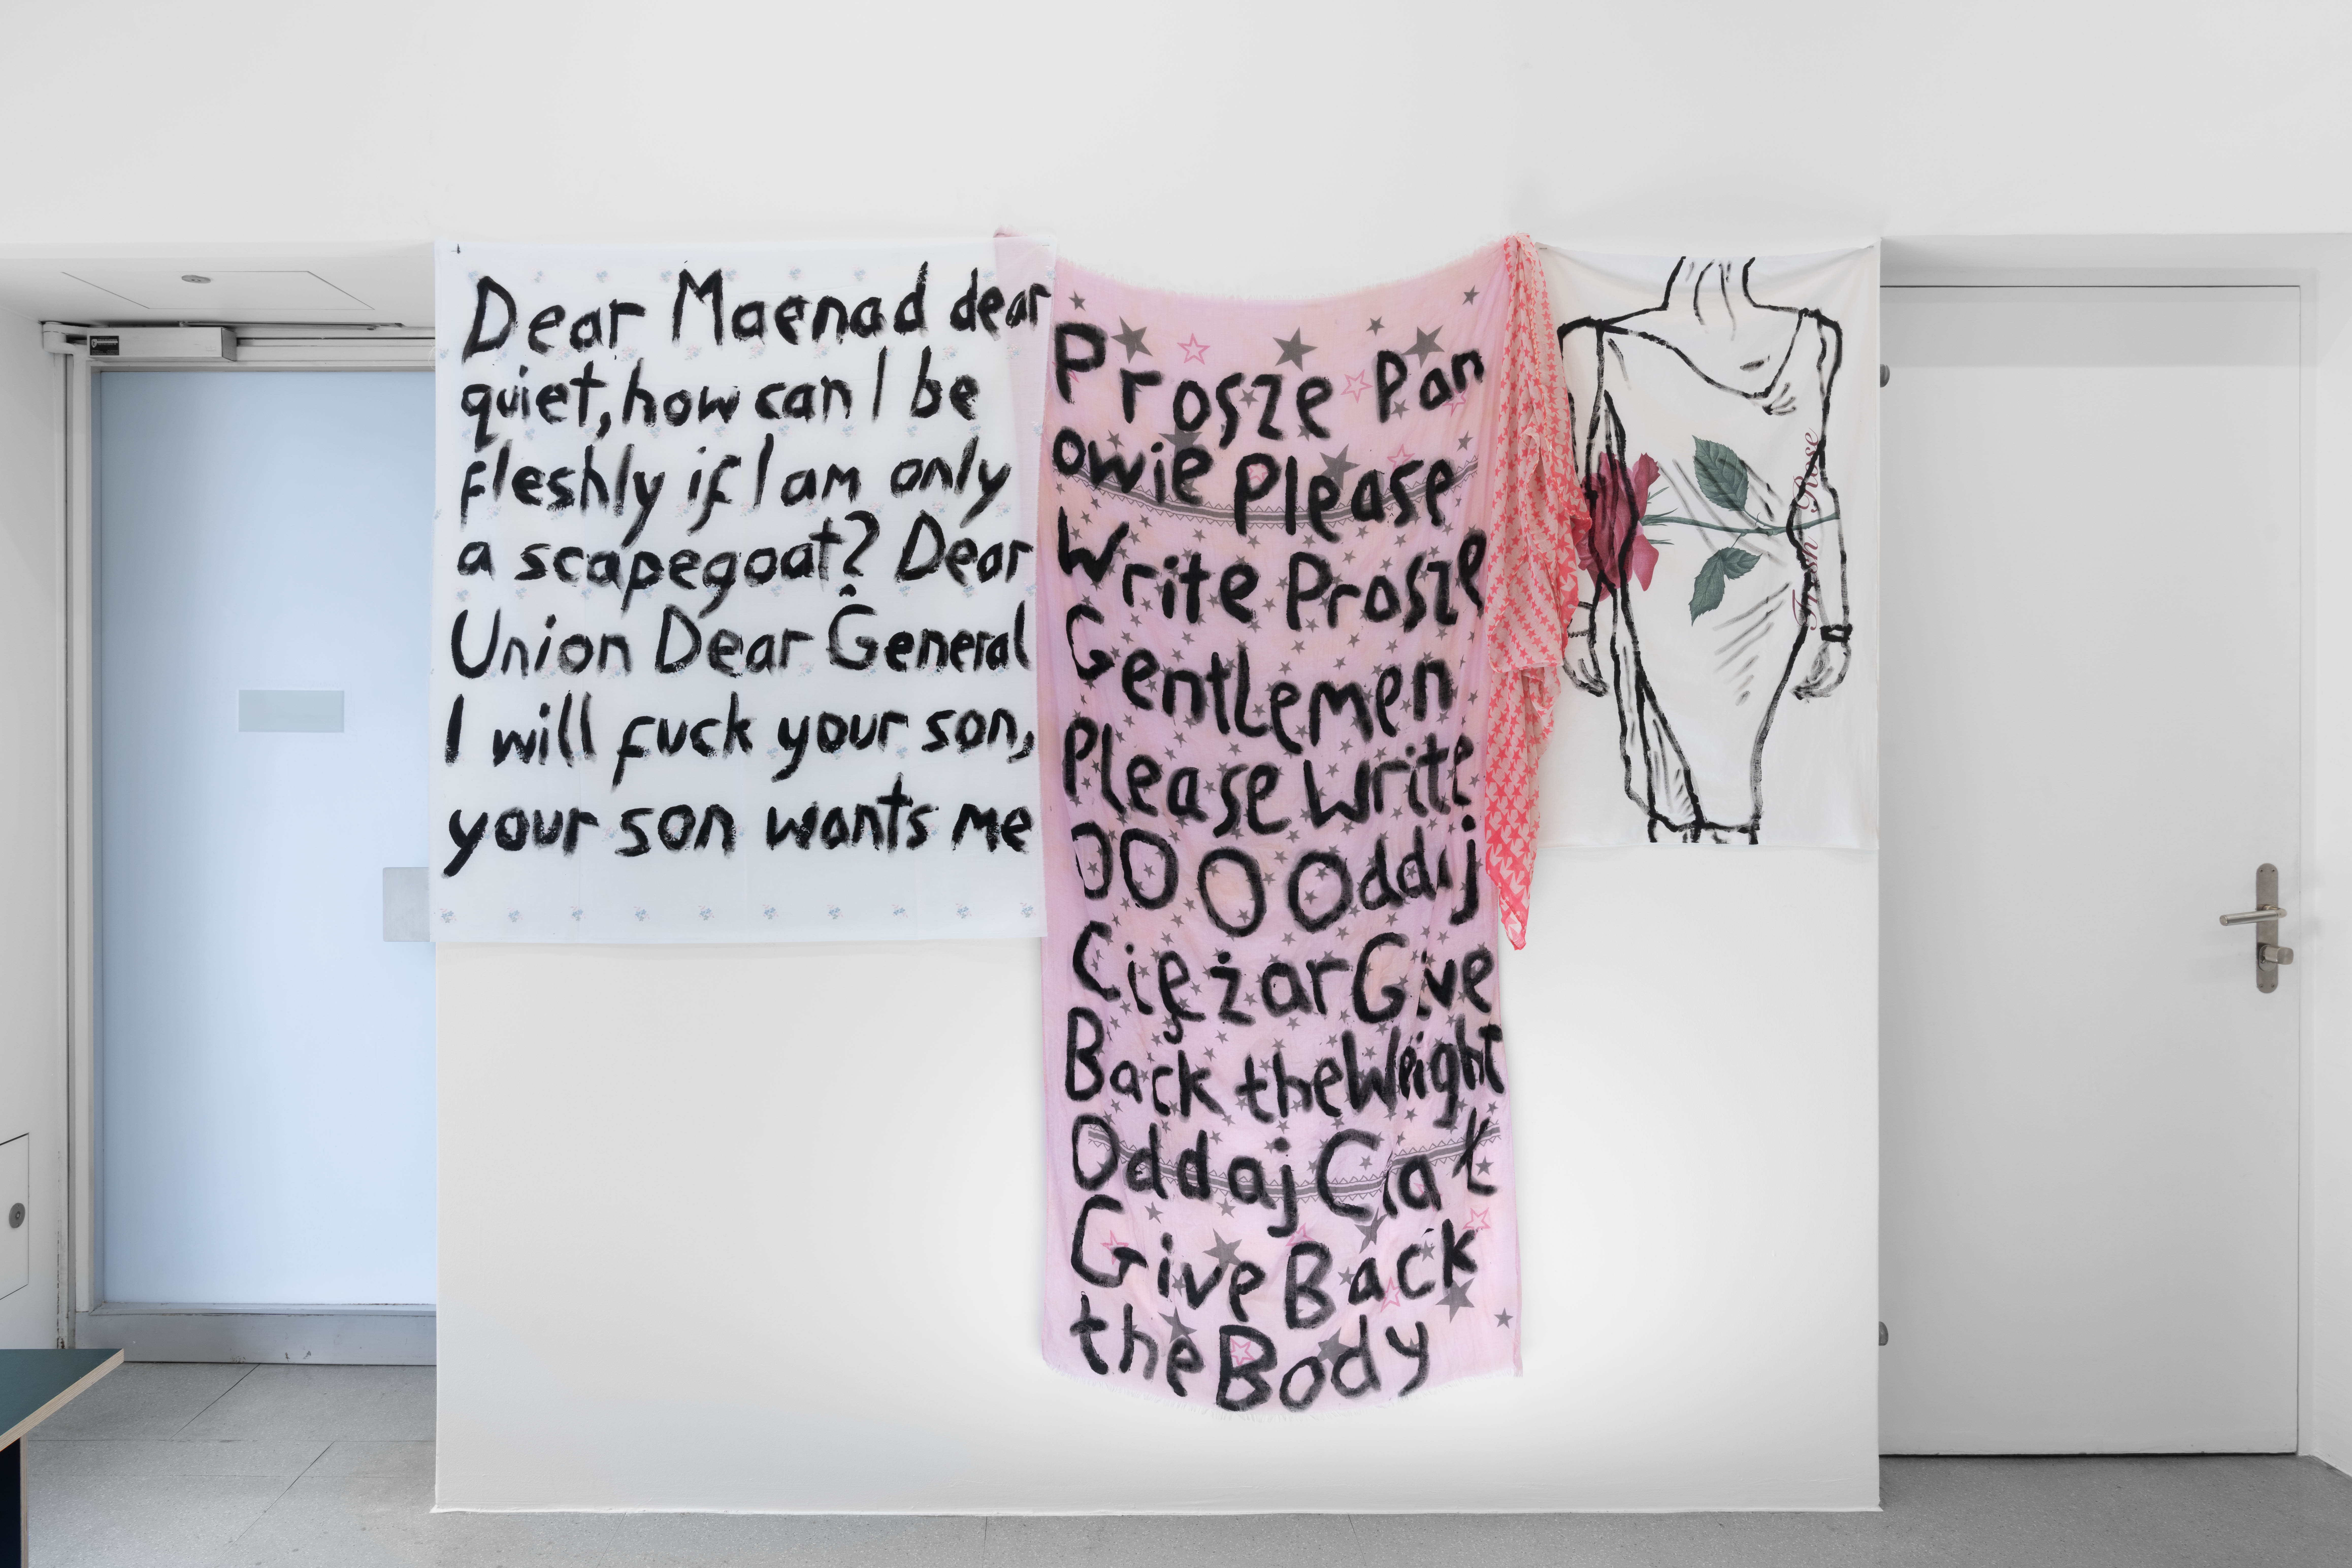 Dear Maenad dear
quiet, how can I be
fleshly if I am only
a scapegoat? Dear
Union Dear General
I will fuck your son,
your son wants me
Prosze Pan
owie Please
Write Prosze
Gentlemen
Please Write
OO O Oddaj
Ciężar Give
Back the Weight
Oddaj Ciał
Give Back
the Body
Fresh Rose